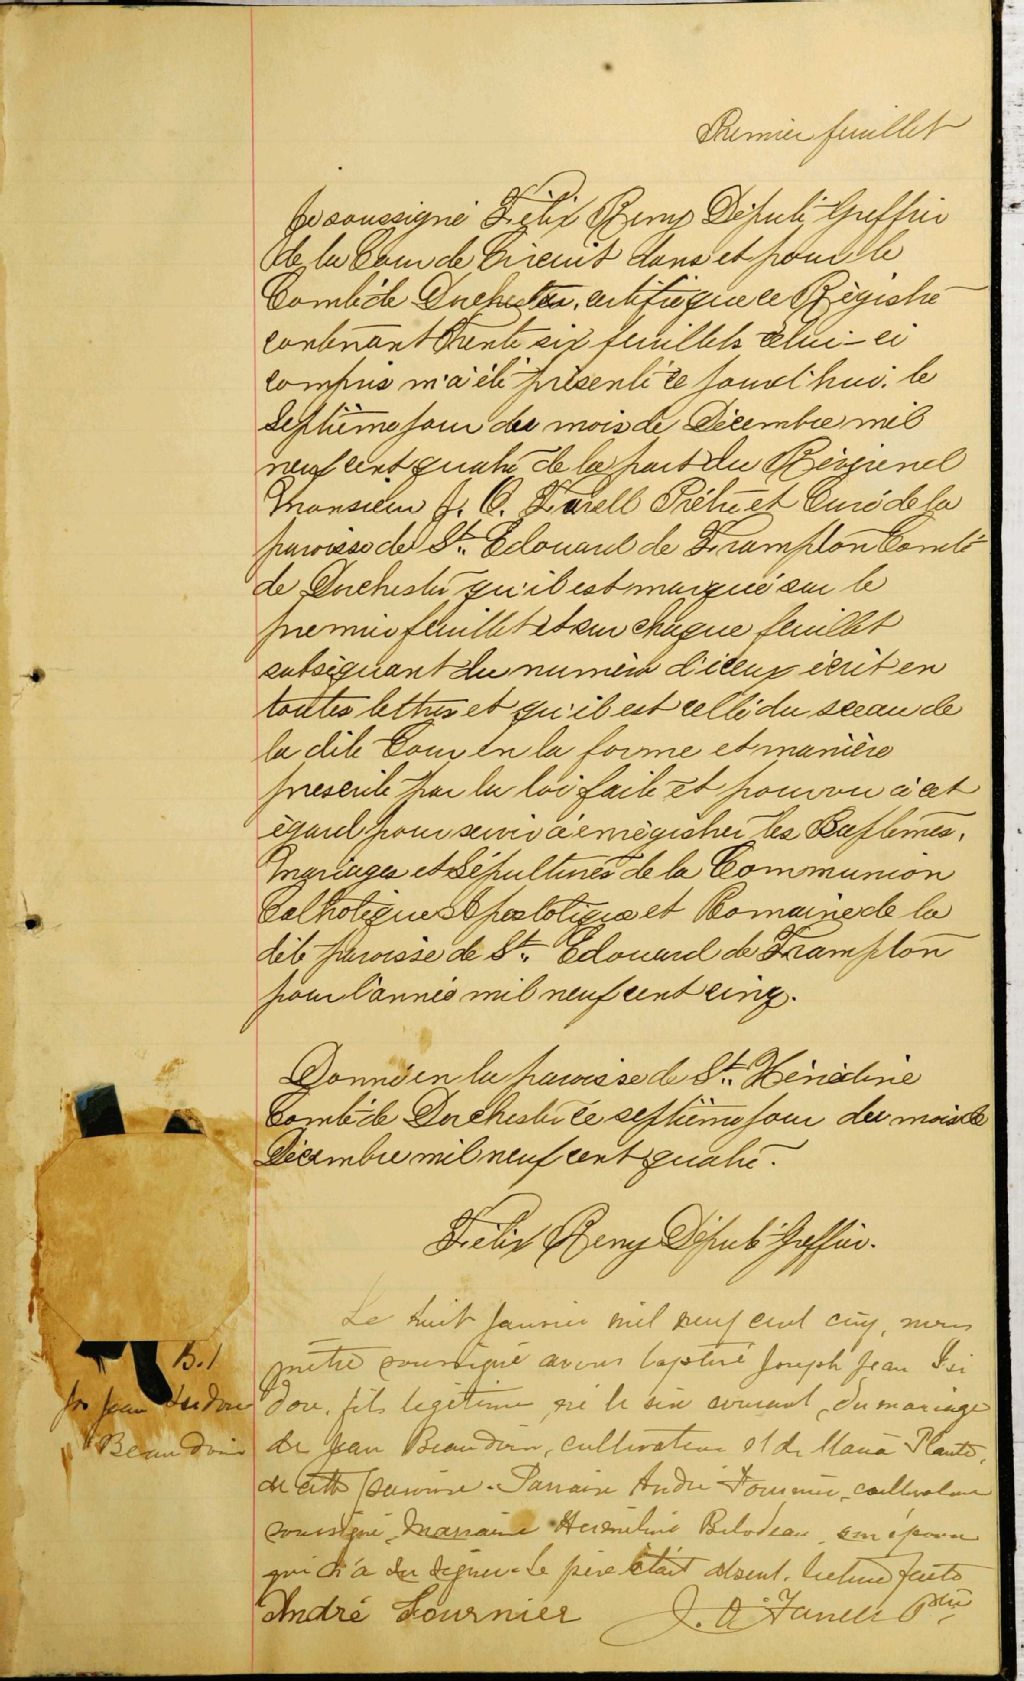 Premier feuillet
Je soussigné Félix Remy Député Greffier
de la Cour de Circuit dans et pour le
Comté de Dorchester, certifie que ce Régistre
contenant trente six feuillets celui-ci
compris m'a été présenté ce jourd'hui, le
Septième jour du mois de Décembre mil
neuf cent quatre de la part du Révérend
Monsieur J. O. Farell Prêtre et Curé de la
paroisse de St. Edouard de Frampton Comté
de Dorchester qu'il est marqué sur le
premier feuillet et sur chaque feuillet
subséquant du numéro d'iceux écrit en
toutes lettres et qu'il est cellé du sceau de
la dite Cour en la forme et manière
prescrite par la loi faite et pourvu à cet
égard pour servir à enrégistrer les Baptêmes,
Mariages et Sépultures de la Communion
Catholique Apostolique et Romaine de la
dite paroisse de St. Edouard de Frampton
pour l'année mil neuf cent cinq.
Donné en la paroisse de St. Hénédine
Comté de Dorchester ce septième jour du mois de
Décembre mil neuf cent quatre.
Félix Remy Député Greffier.
Le huit janvier mil neuf cent cinq, nous
prêtre soussigné avons baptisé Joseph Jean Isi
B.1
dore, fils légitime, né le six courant, du mariage
Jos Jean Isidore
Beaudoin
de Jean Beaudoin, cultivateur et de Maria Plante,
de cette paroisse. Parrain André Fournier, cultivateur
soussigné, Marraine Herméline Bilodeau son épouse
qui n'a su signer. Le père était absent. Lecture faite
André Fournier J. O. Farrell Ptre